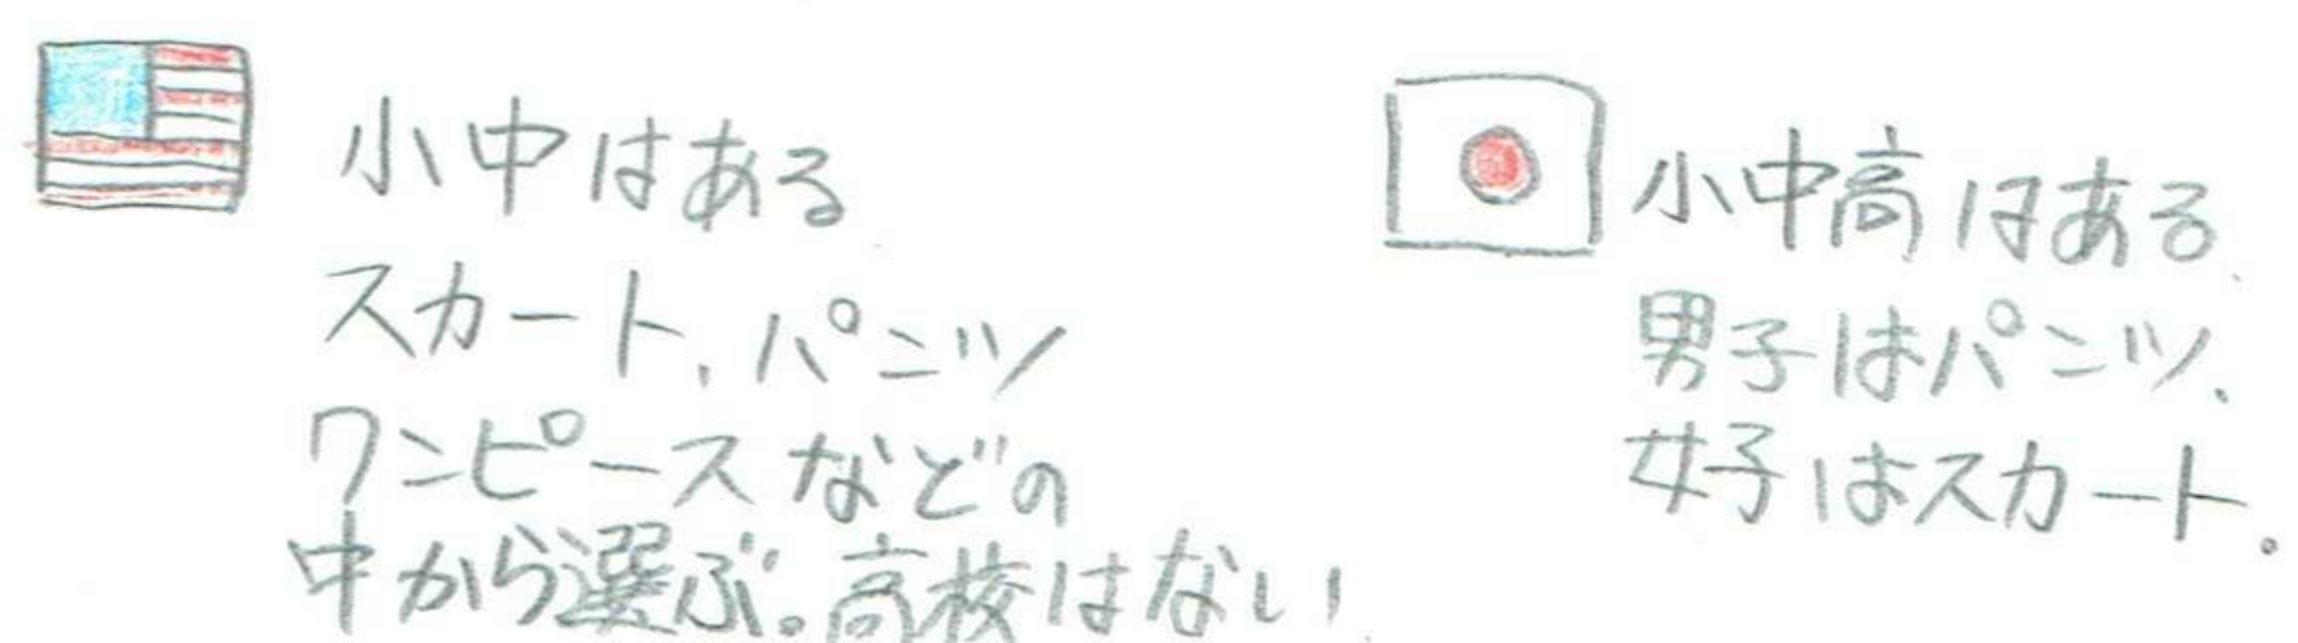 小中はある
スカート、パンツ
ワンピースなどの
中から選ぶ。高校はない
小中高はある
男子はパンツ、
女子はスカート。